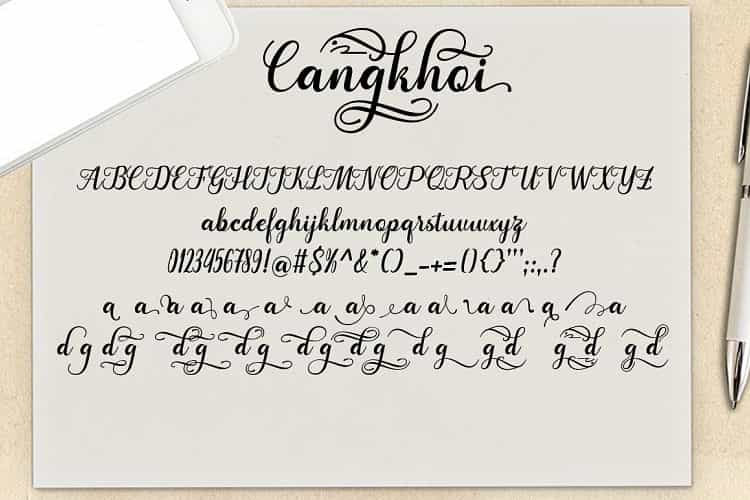 Cangkhoi
ABCDEFGHIJKLMNOPQRSTUVWXYZ
abcdefghijklmnopqrstuvwxyz
0123456789!@#$%^&*()_-+=(){}"';:,.?
a a a a a a a a a a a a a a a
d g d g d g d g d g d g d g g d g d g d